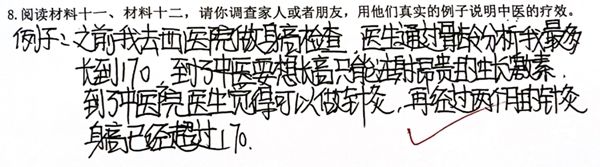 8.阅读材料十一、材料十二，请你调查家人或者朋友，用他们真实的例子说明中医的疗效。
例子：之前我去西医院做身高检查，医生通过骨龄分析我最多
长到170，到了中医要想长高只能注射昂贵的生长激素.
到了中医院医生觉得可以做针灸，再经过两个月的针灸
身高已经超过170.